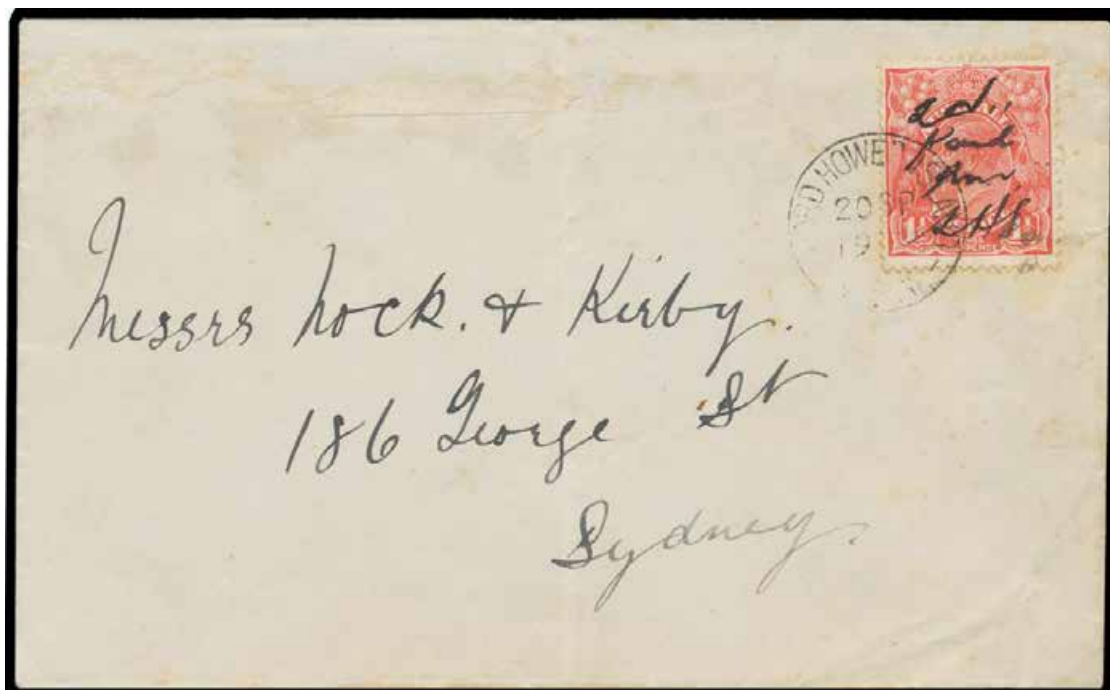 2d.
Paid
RD HOWE
20 SP
19
Messrs Nock. & Kirby.
186 George St
Sydney.